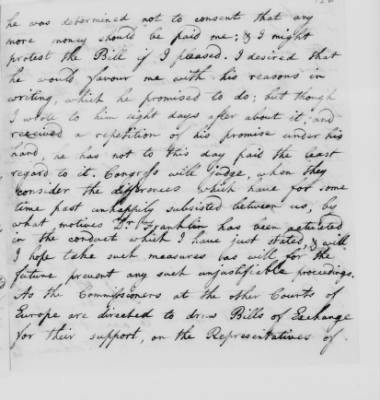 he was determined not to consent that any
more money should be paid me; & I might
protest the Bill if I pleased. I desired that
he would favour me with his reasons in
writing, which he promised to do; but though
I wrote to him eight days after about it, and
received a repetition of his promise under his
hand, he has not to this day paid the least
regard to it. Congress will judge, when they
consider the differences which have for some
time past unhappily subsisted between us, by
what motives Dr. Franklin has been actuated
in the conduct which I have just stated, & will
I hope take such measures as will for the
future prevent any such unjustifiable proceedings.
As the Commissioners at the other Courts of
Europe are directed to draw Bills of Exchange
for their support, on the Representatives of